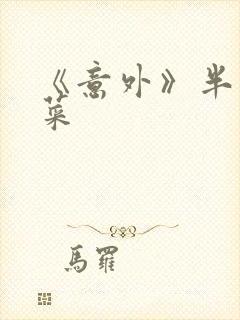 《意外》半
菜
馬羅